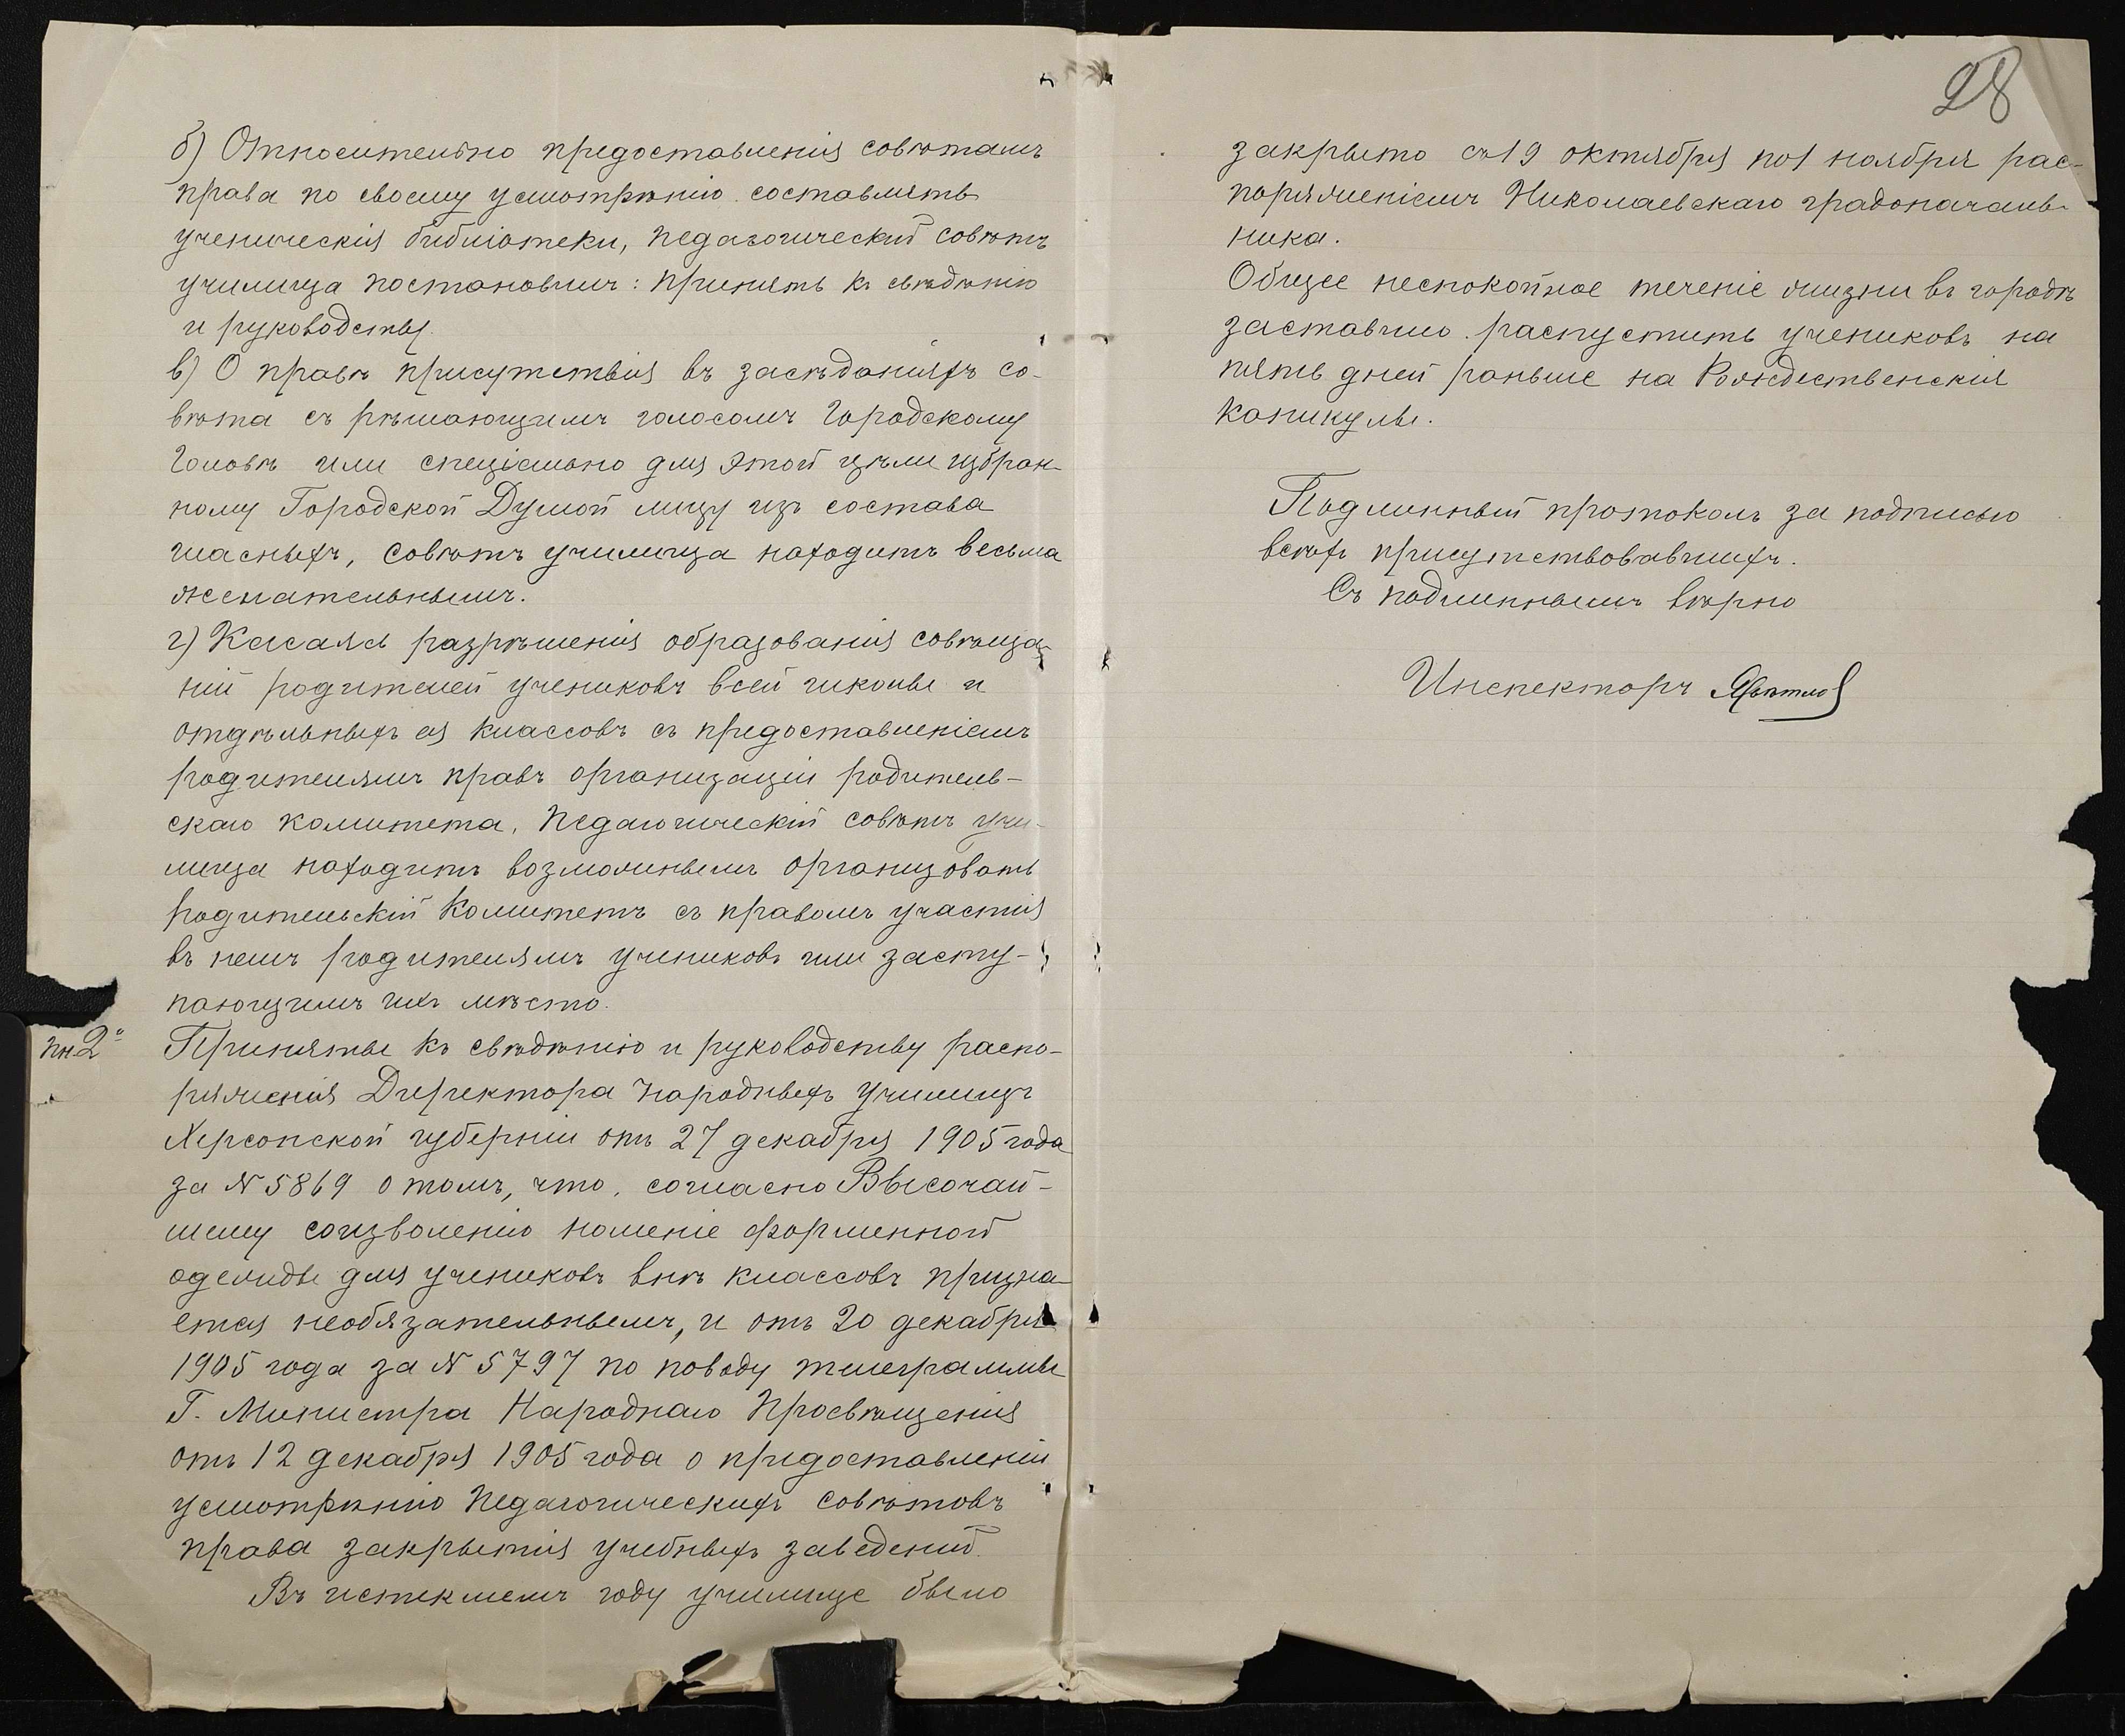 б) Относительно предоставленія совѣтамъ
права по своему усмотрѣнію составлять
ученическія библіотеки, педагогическій совѣтъ
училища постановилъ: принять къ свѣдѣнію
и руководству.
в) О правѣ присутствія въ засѣданіяхъ со-
вѣта съ рѣшающимъ голосомъ Городскому
Головѣ или спеціально для этой цѣли избран-
ному Городской Думой лицу изъ состава
гласныхъ, совѣтъ училища находитъ весьма
желательнымъ.
г) Касаясь разрѣшенія образованія совѣща-
ній родителей учениковъ всей школы и
отдѣльныхъ ея классовъ съ предоставленіемъ
родителямъ правъ организаціи родитель-
скаго комитета, педагогическій совѣтъ учи-
лища находитъ возможнымъ организовать
родительскій комитетъ съ правомъ участія
въ немъ родителямъ учениковъ или засту-
пающимъ ихъ мѣсто.
пн. 2º
Приняты къ свѣдѣнію и руководству распо-
ряженія Директора народныхъ училищъ
Херсонской губерніи отъ 27 декабря 1905 года
за № 5869 о томъ, что, согласно Высочай-
шему соизволенію ношеніе форменной
одежды для учениковъ внѣ классовъ призна-
ется необязательнымъ, и отъ 20 декабря
1905 года за № 5797 по поводу телеграммы
Г. Министра Народнаго Просвѣщенія
отъ 12 декабря 1905 года о предоставленіи
усмотрѣнію педагогическихъ совѣтовъ
права закрытія учебныхъ заведеній.
Въ истекшемъ году училище было
28
закрыто съ 19 октября по 1 ноября рас-
поряженіемъ Николаевскаго градоначаль-
ника.
Общее неспокойное теченіе жизни въ городѣ
заставило распустить учениковъ на
пять дней раньше на Рождественскія
каникулы.
Подлинный протоколъ за подписью
всѣхъ присутствовавшихъ.
Съ подлиннымъ вѣрно
Инспекторъ